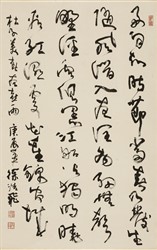 好雨知時節當春乃發生
隨風潛入夜潤物細無聲
野徑雲俱黑江船火獨明曉
看紅濕處花重錦官城
杜甫春夜喜雨 庚辰 徐